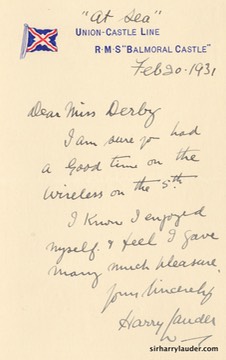 "At Sea"
UNION-CASTLE LINE
R·M·S "BALMORAL CASTLE"
Feb 20·1931
Dear Miss Derby
I am sure yo had
a Good time on the
Wireless on the 5th
I know I enjoyed
myself. & feel I gave
many much pleasure.
Yours Sincerely
Harry Lauder
sirharrylauder.com